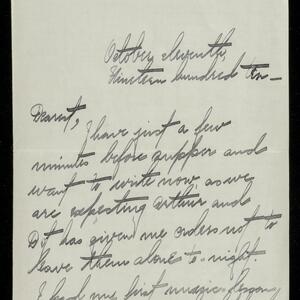 October eleventh,
Nineteen hundred ten—
Dearest,
I have just a few
minutes before supper and
want to write now as we
are expecting Arthur and
D it has given me orders not to
leave them alone to-night.
I had my first music lesson